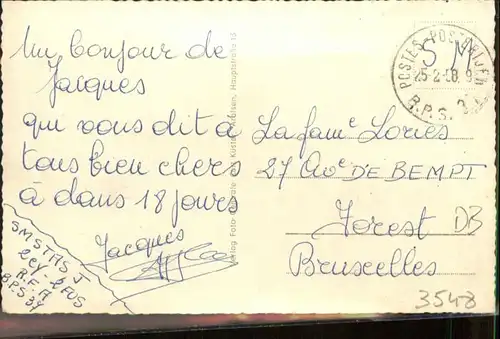 Un bonjour de
Jacques
qui vous dit à
tous bien chers
à dans 18 jours
Jacques
SMSTAS J
2CY - 2FUS
B.P.S 37
Hauptstraße
POSTES-POSTERIJEN
S M
25-2-58
B.P.S. 3
La famᵉ Lories
27 Avᵉ DE BEMPT
Forest
Bruxelles
DB
3548